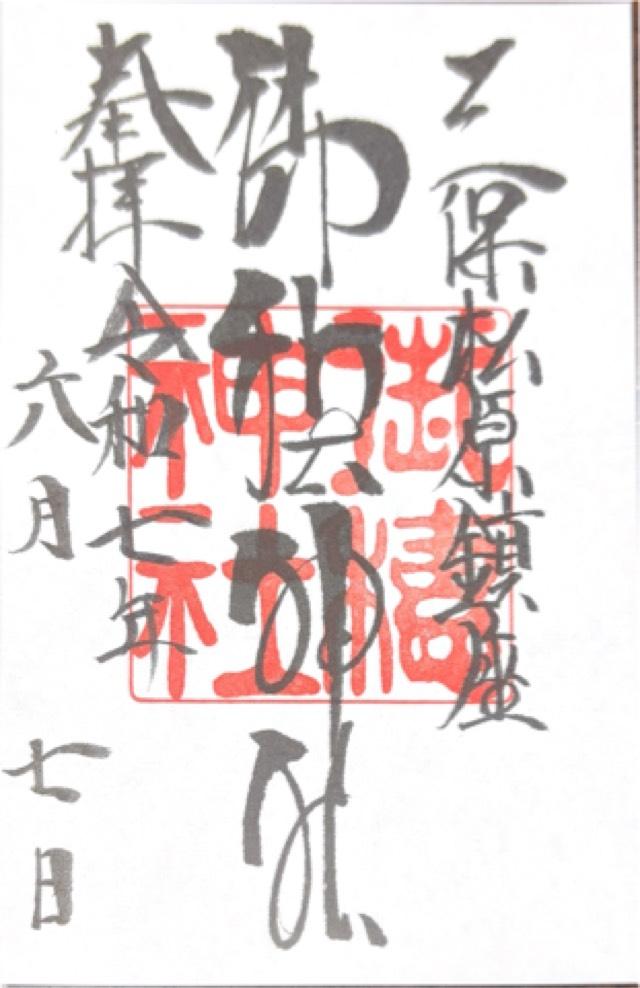 三保松原鎮座
御穂神社
奉拝
令和七年
六月七日
御穂
神社